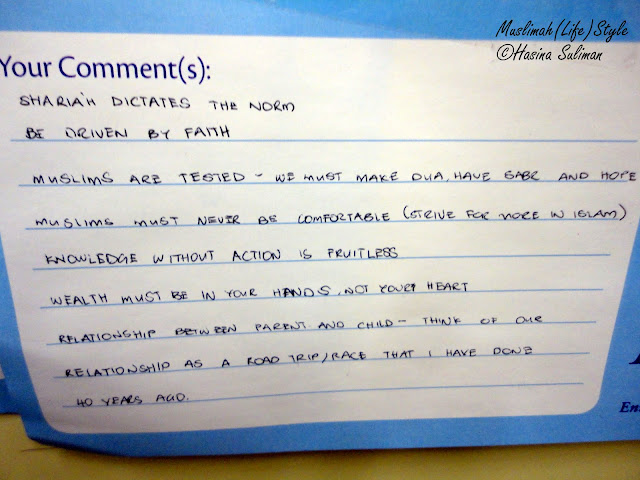 Muslimah (Life) Style
©Hasina Suliman
Your Comment(s):
SHARIA'H DICTATES THE NORM
BE DRIVEN BY FAITH
MUSLIMS ARE TESTED - WE MUST MAKE DUA, HAVE SABR AND HOPE
MUSLIMS MUST NEVER BE COMFORTABLE (STRIVE FOR MORE IN ISLAM)
KNOWLEDGE WITHOUT ACTION IS FRUITLESS
WEALTH MUST BE IN YOUR HANDS, NOT YOUR HEART
RELATIONSHIP BETWEEN PARENT AND CHILD - THINK OF OUR
RELATIONSHIP AS A ROAD TRIP/RACE THAT I HAVE DONE
40 YEARS AGO.